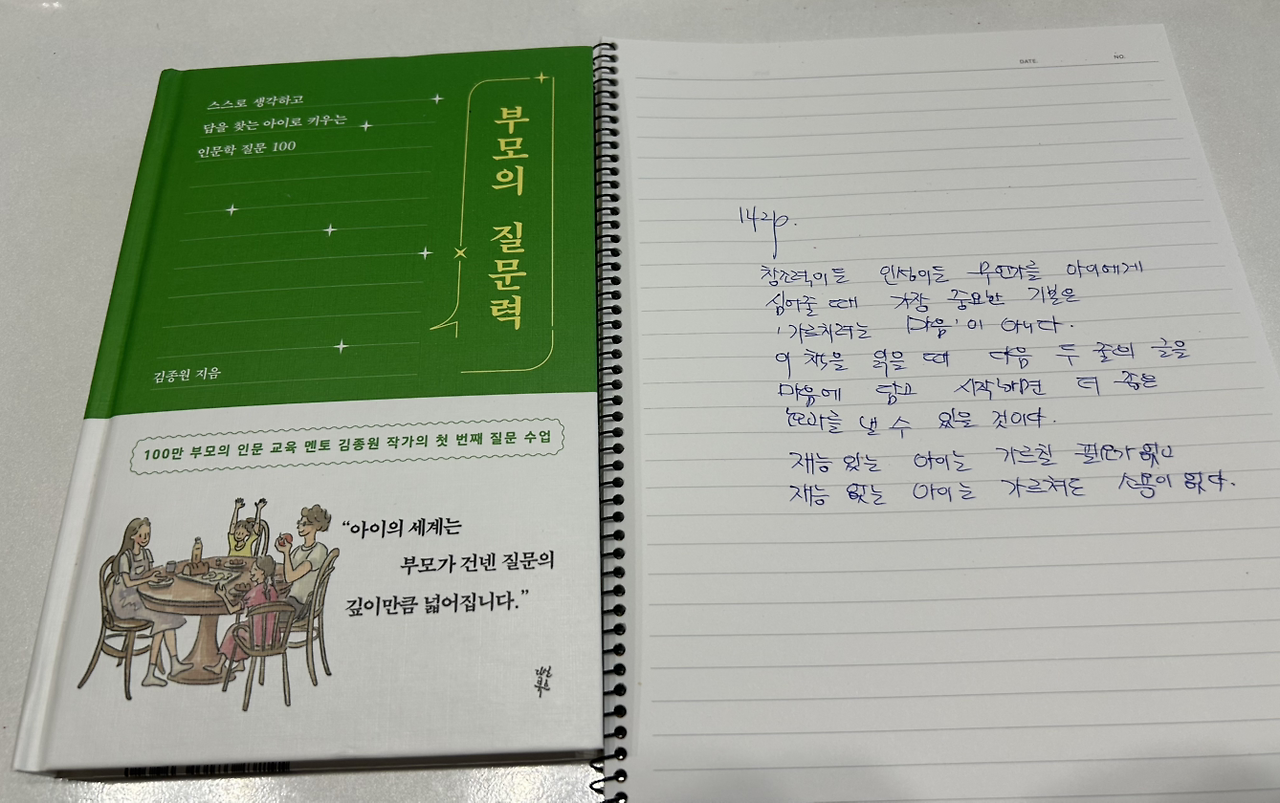 스스로 생각하고
답을 찾는 아이로 키우는
인문학 질문 100
부모의 질문력
김종원 지음
100만 부모의 인문 교육 멘토 김종원 작가의 첫 번째 질문 수업
“아이의 세계는
부모가 건넨 질문의
깊이만큼 넓어집니다.”
다산
북스
DATE.
NO.
142p.
창조력이든 인성이든 무언가를 아이에게
심어줄 때 가장 중요한 기본은
'가르치려는 마음'이 아니다.
이 책을 읽을 때 다음 두 줄의 글을
마음에 담고 시작하면 더 좋은
효과를 낼 수 있을 것이다.
재능 있는 아이는 가르칠 필요가 없고
재능 없는 아이는 가르쳐도 소용이 없다.